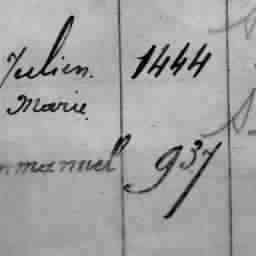 Julien. 1444
Marie.
mmanuel 937